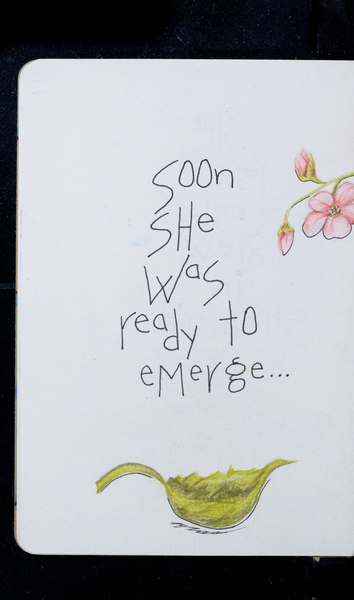 soon
SHe
Was
ready to
eMerge...